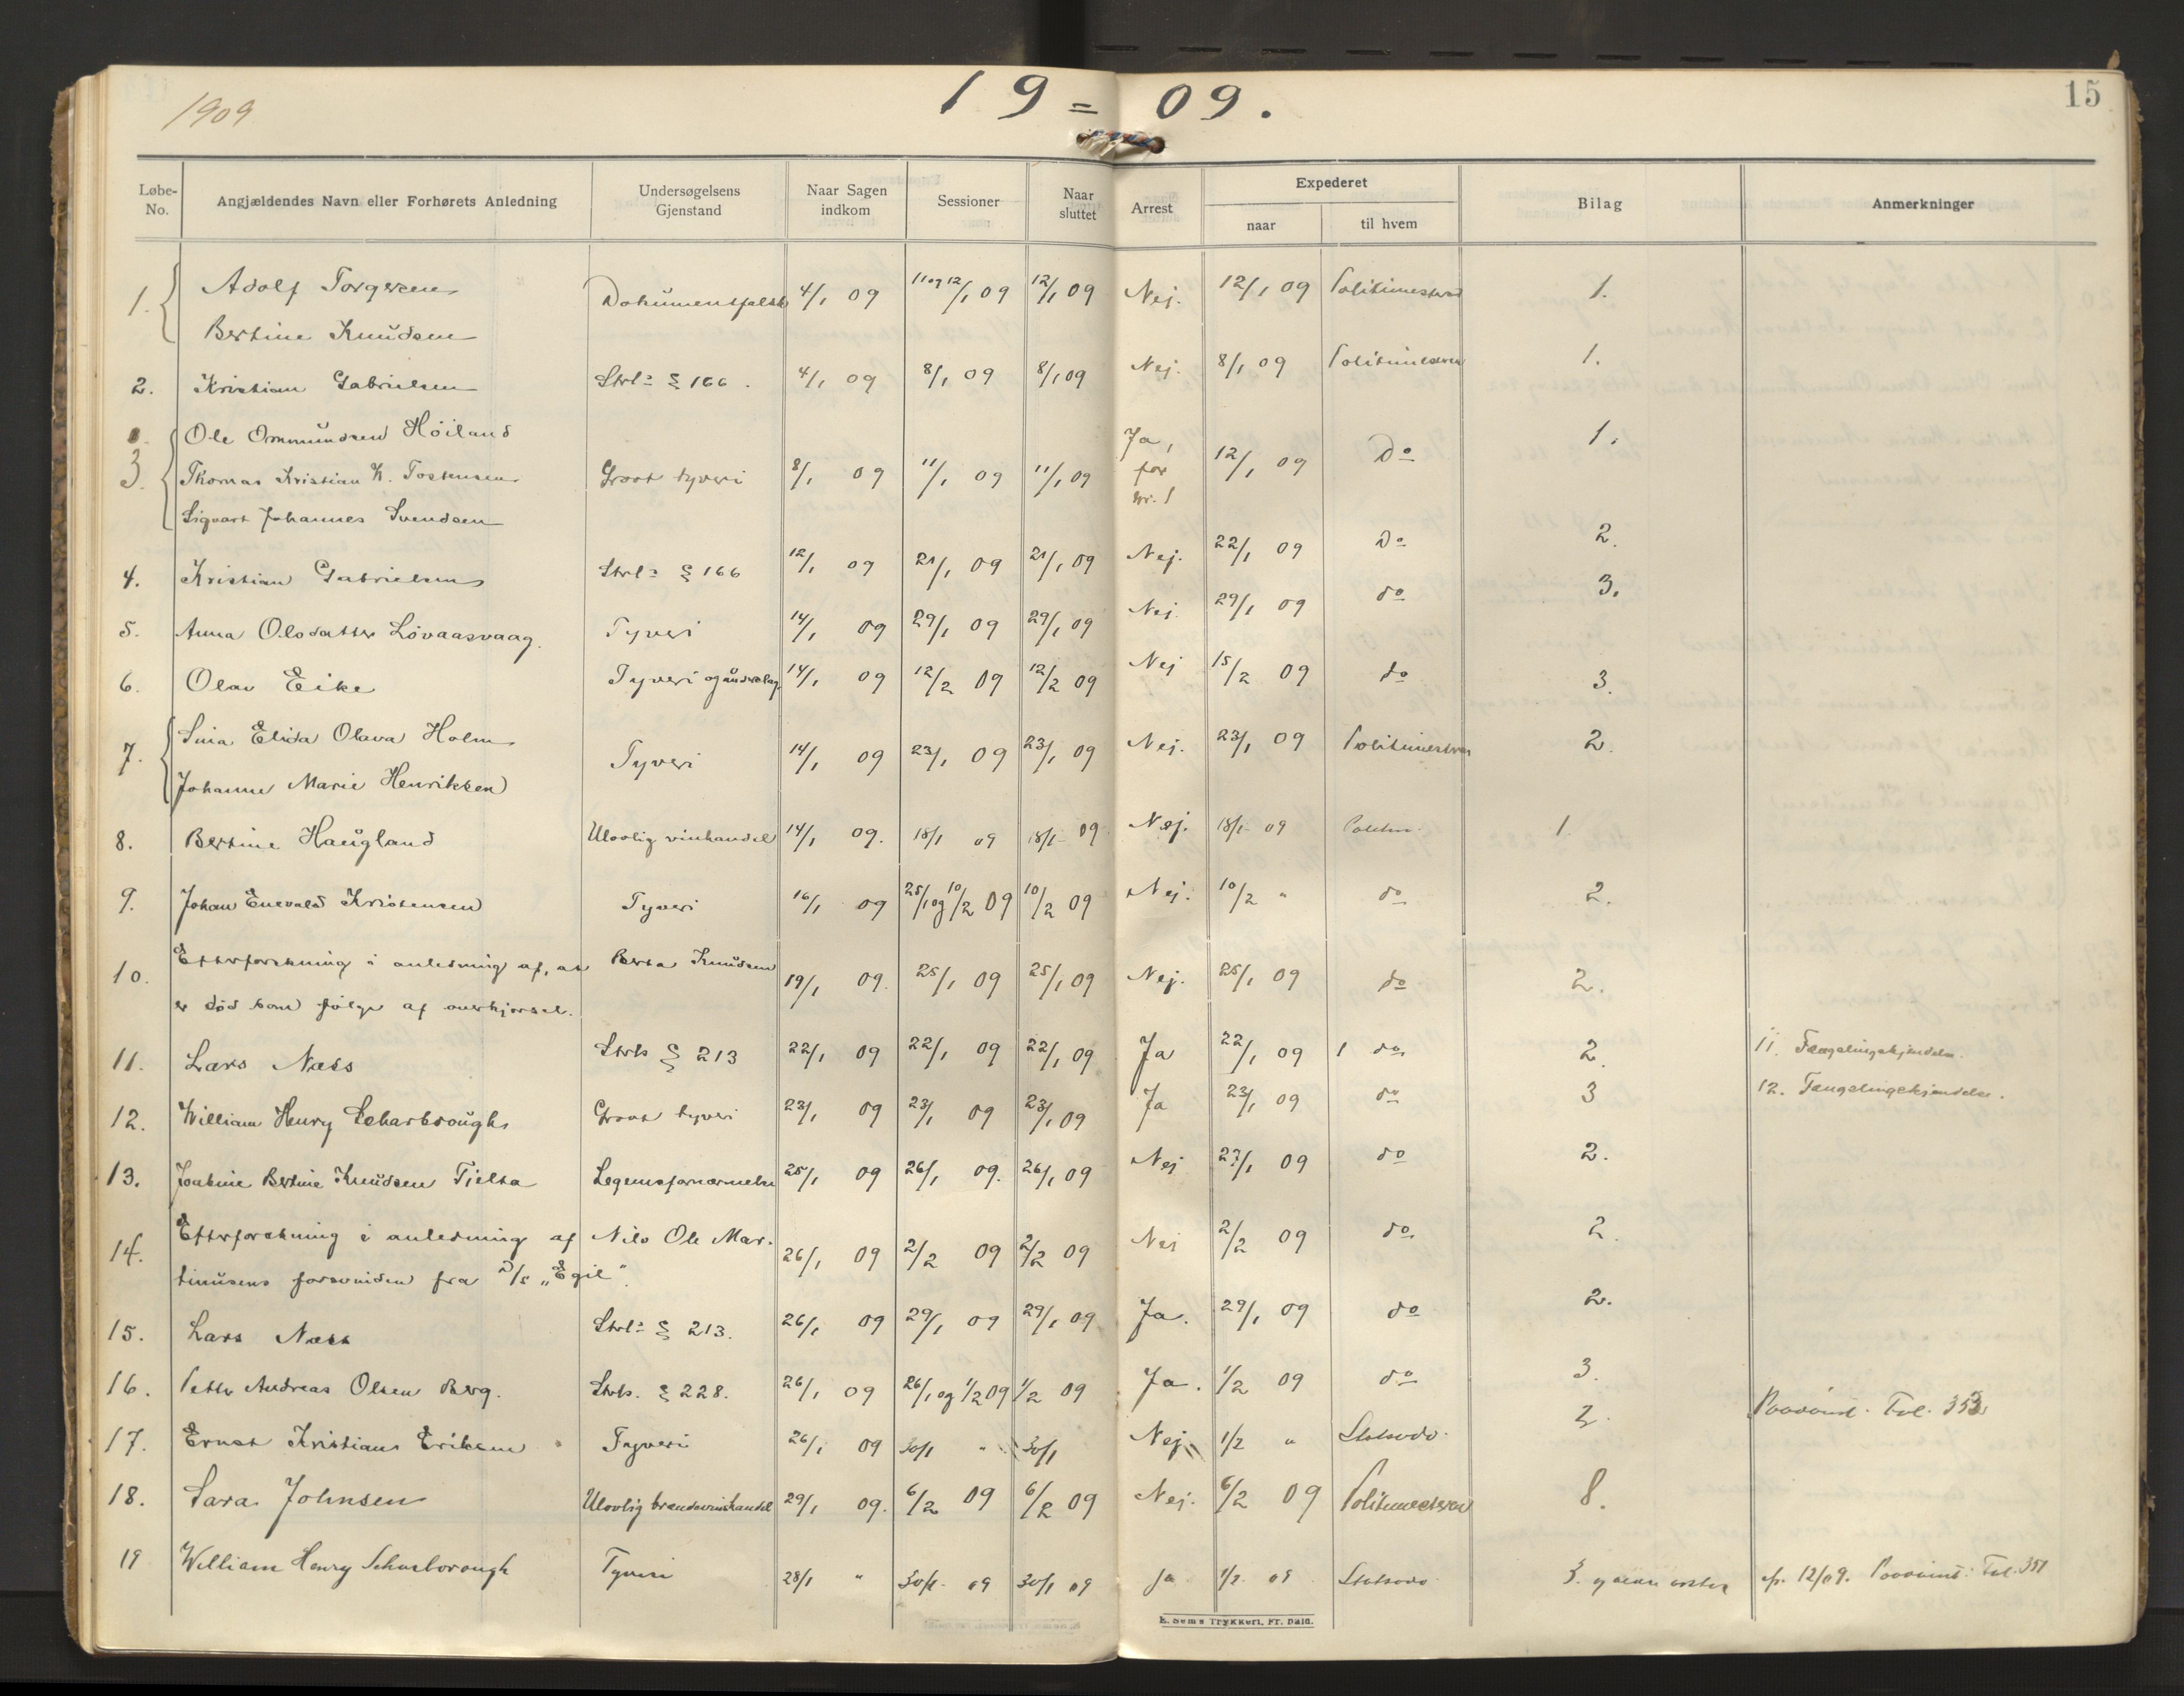 1909
19 = 09.
15
Løbe-No. Angjældendes Navn eller Forhørets Anledning Undersøgelsens Gjenstand Naar Sagen indkom Sessioner Naar sluttet Arrest Expederet naar til hvem Bilag Anmerkninger
1. Adolf Torgersen Dokumentfalsk 4/1 09 11 og 12/1 09 12/1 09 Nej. 12/1 09 Politimesteren 1.
Bertine Knudsen
2. Kristian Gabrielsen Strl. § 166. 4/1 09 8/1 09 8/1 09 Nej. 8/1 09 Politimesteren 1.
3. Ole Ommundsen Höiland Ja, for nr. 1 1.
Thomas Kristian K. Tostensen Grovt tyveri 8/1 09 11/1 09 11/1 09 12/1 09 Do
Sigvart Johannes Svendsen
4. Kristian Gabrielsen Strl. § 166 12/1 09 21/1 09 21/1 09 Nej. 22/1 09 Do 2.
5. Anna Olsdatter Lövaasvaag. Tyveri 14/1 09 29/1 09 29/1 09 Nei 29/1 09 do 3.
6. Olav Eike Tyveri og underslag 14/1 09 12/2 09 12/2 09 Nej 15/2 09 do 3.
7. Sina Elida Olava Holm Tyveri 14/1 09 23/1 09 23/1 09 Nej. 23/1 09 Politimesteren 2.
Johanne Marie Henriksen
8. Bertine Haugland Ulovlig vinhandel 14/1 09. 18/1 09 18/1 09 Nej. 18/1 09 Politim. 1.
9. Johan Enevald Kristensen Tyveri 16/1 09 25/1 og 10/2 09 10/2 09 Nej. 10/2 " do 2.
10. Efterforskning i anledning af, at Berta Knudsen 19/1 09. 25/1 09 25/1 09 Nej. 25/1 09 do 2.
er död som fölge af overkjørsel.
11. Lars Næss Strls § 213 22/1 09 22/1 09 22/1 09 Ja 22/1 09 do 2. 11. Fængslingskjendelse.
12. William Henry Scharbrough Grovt tyveri 23/1 09 23/1 09 23/1 09 Ja 23/1 09 do 3 12. Fængslingskjendelse.
13. Joakine Bertine Knudsen Tjelta Legemsfornærmelse 25/1 09 26/1 09. 26/1 09 Nej 27/1 09 do 2.
14. Efterforskning i anledning af Nils Ole Mar- 26/1 09 2/2 09 2/2 09 Nei 2/2 09 do 2.
tinusens forsvinden fra D/s „Egil“.
15. Lars Næss Strl. § 213. 26/1 09 29/1 09 29/1 09 Ja. 29/1 09 do 2.
16. Petter Andreas Olsen Berg. Strls. § 228. 26/1 09 26/1 og 1/2 09 1/2 09 Ja. 1/2 09 do 3.
17. Ernst Kristian Eriksen Tyveri 26/1 09 30/1 " 30/1 Nej 1/2 " Statsadv. 2. Fol. 353
18. Sara Johnsen Ulovlig brændevinshandel 29/1 09. 6/2 09 6/2 09 Nej. 6/2 09 Politimesteren 8.
19 William Henry Scharborough Tyveri 28/1 " 30/1 09 30/1 09 Ja 1/2 09 Statsadv. 3. 12/09. Fol. 351
E. Sems Trykkeri, Fr. Hald.